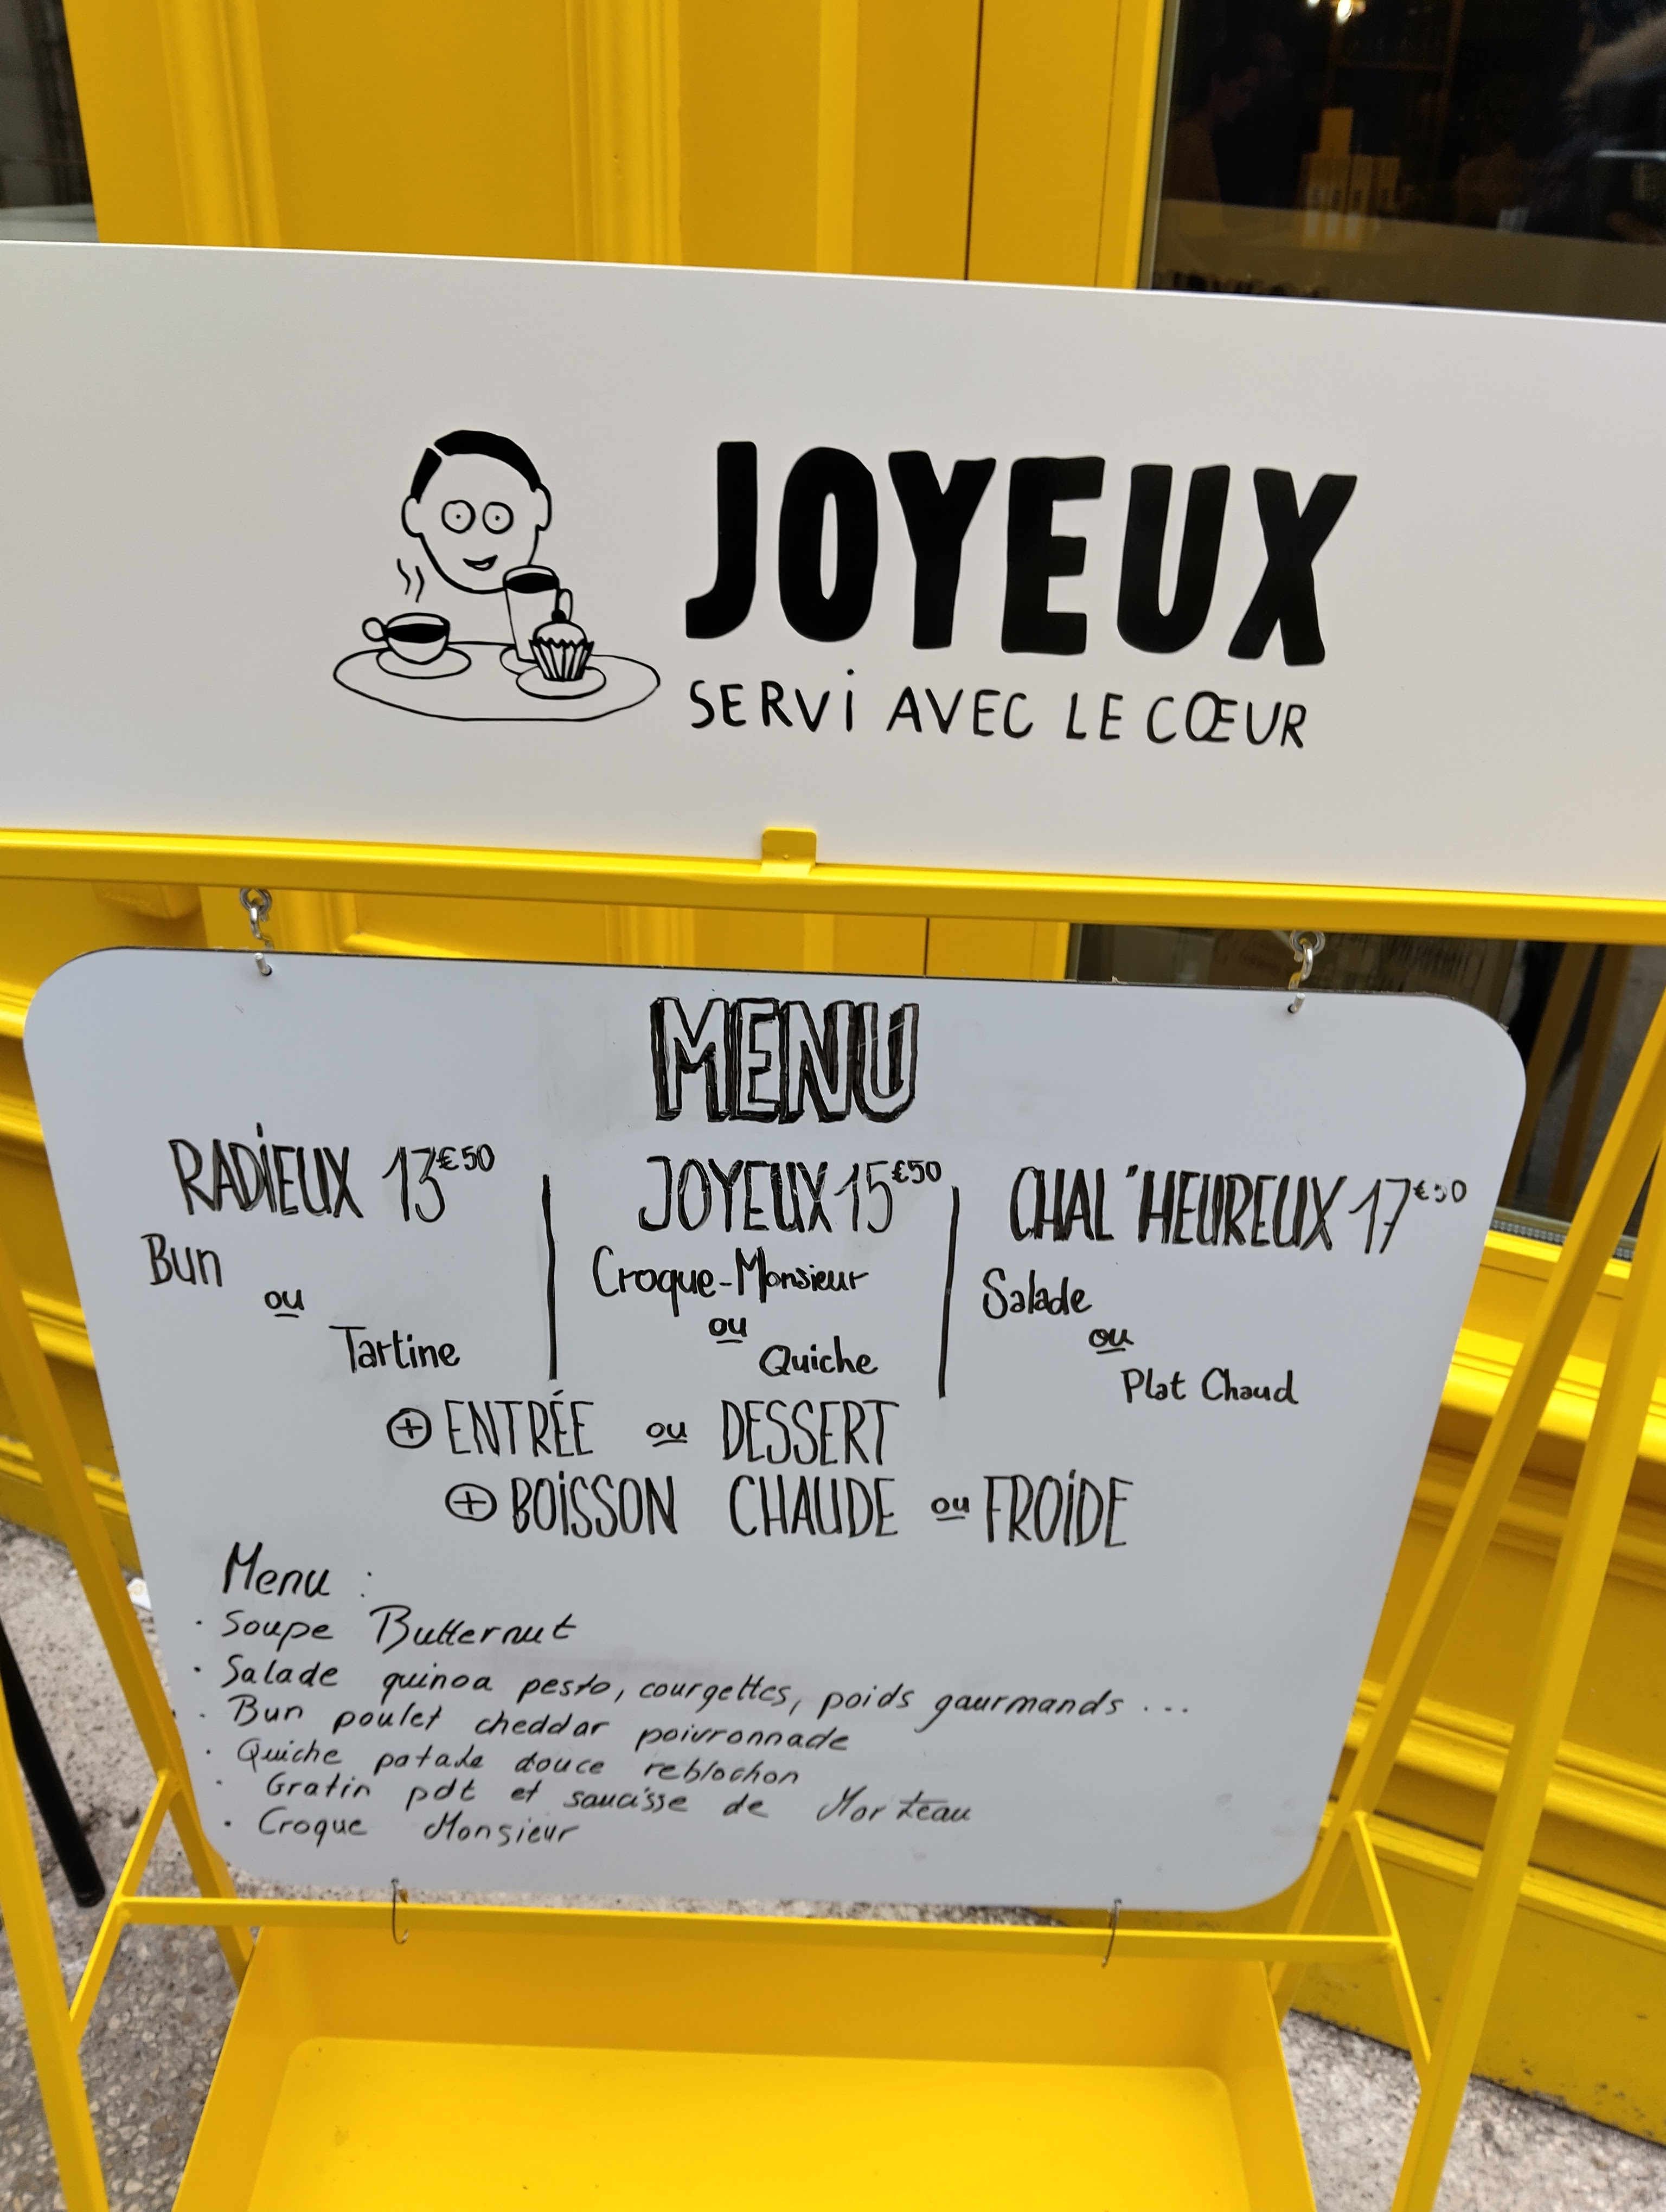 JOYEUX
SERVI AVEC LE CŒUR
MENU
RADIEUX 13€50
Bun
ou
Tartine
JOYEUX 15€50
Croque-Monsieur
ou
Quiche
CHAL'HEUREUX 17€50
Salade
ou
Plat Chaud
⊕ ENTRÉE ou DESSERT
⊕ BOISSON CHAUDE ou FROIDE
Menu :
· Soupe Butternut
· Salade quinoa pesto, courgettes, poids gaurmands ...
· Bun poulet cheddar poivronnade
· Quiche patate douce reblochon
· Gratin pdt et saucisse de Morteau
· Croque Monsieur